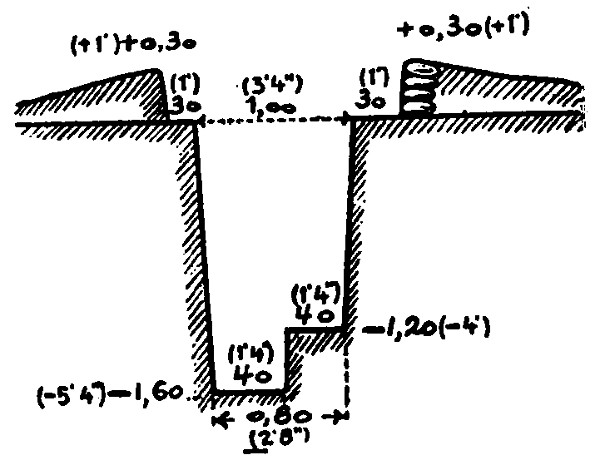 +0,30(+1')
(+1')+0,30
(1')
30
(3'4")
1,00
(1')
30
(1'4")
40
-1,20(-4')
(1'4")
40
(-5'4")-1,60
0,80
(2'8")